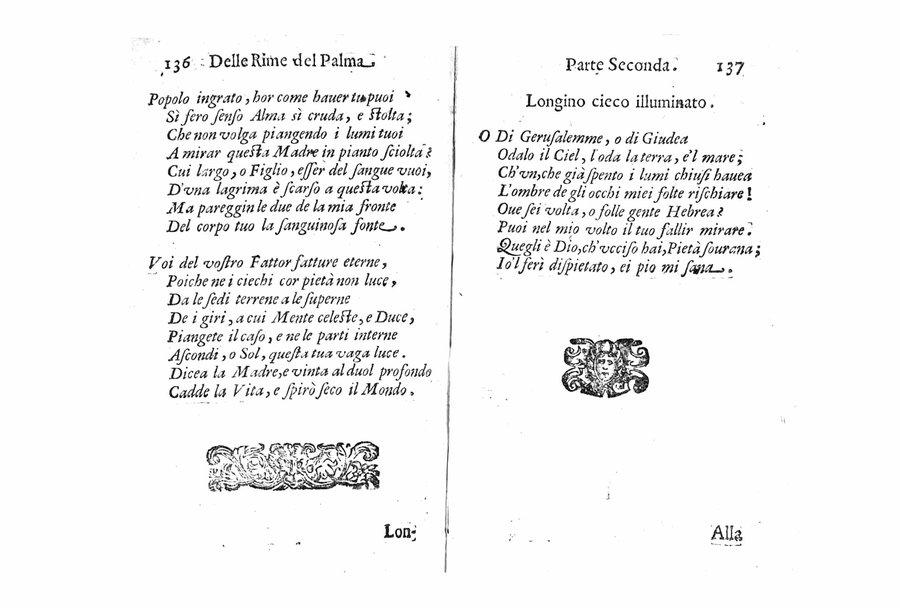 136 Delle Rime del Palma.
Popolo ingrato, hor come hauer tu puoi
Sì fero ſenſo Alma sì cruda, e ſtolta;
Che non volga piangendo i lumi tuoi
A mirar queſta Madre in pianto ſciolta?
Cui largo, o Figlio, eſſer del ſangue vuoi,
D'vna lagrima è ſcarſo a queſta volta:
Ma pareggin le due de la mia fronte
Del corpo tuo la ſanguinoſa fonte.
Voi del voſtro Fattor fatture eterne,
Poiche ne i ciechi cor pietà non luce,
Da le ſedi terrene a le ſuperne
De i giri, a cui Mente celeſte, e Duce,
Piangete il caſo, e ne le parti interne
Aſcondi, o Sol, queſta tua vaga luce.
Dicea la Madre, e vinta al duol profondo
Cadde la Vita, e ſpirò ſeco il Mondo.
Lon-
Parte Seconda. 137
Longino cieco illuminato.
O Di Geruſalemme, o di Giudea
Odalo il Ciel, l'oda la terra, e'l mare;
Ch'vn, che già ſpento i lumi chiuſi hauea
L'ombre de gli occhi miei folte riſchiare!
Oue ſei volta, o folle gente Hebrea?
Puoi nel mio volto il tuo fallir mirare.
Quegli è Dio, ch'vcciſo hai, Pietà ſourana;
Io'l ferì diſpietato, ei pio mi ſana.
Alla